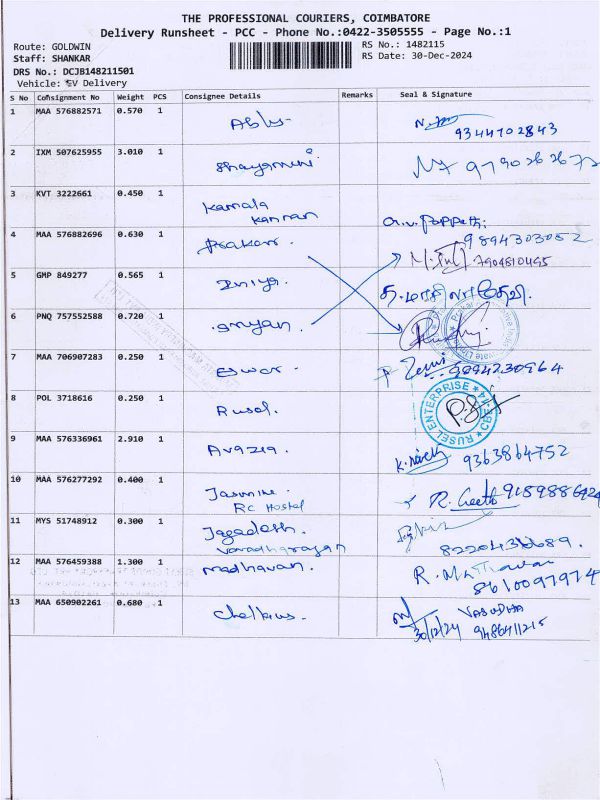 THE PROFESSIONAL COURIERS, COIMBATORE
Delivery Runsheet - PCC - Phone No.:0422-3505555 - Page No.:1
Route: GOLDWIN
RS No.: 1482115
Staff: SHANKAR
RS Date: 30-Dec-2024
DRS No.: DCJB148211501
Vehicle: EV Delivery
S No Consignment No Weight PCS Consignee Details Remarks Seal & Signature
1 MAA 576882571 0.570 1
9344702843
2 IXM 507625955 3.010 1 Shayamuni
3 KVT 3222661 0.450 1 Kamala
Kannan
4 MAA 576882696 0.630 1 Prakash 9894303052
7904810495
5 GMP 849277 0.565 1 Iniya.
6 PNQ 757552588 0.720 1
7 MAA 706907283 0.250 1 Eswar. 9894230964
8 POL 3718616 0.250 1 Rusel. RUSEL ENTERPRISE
9 MAA 576336961 2.910 1 9363864752
10 MAA 576277292 0.400 1 Jasmine. R. Geetha
RC Hostel
11 MYS 51748912 0.300 1 Jagadesh.
Varadharajan 8220436689.
12 MAA 576459388 1.300 1 Madhavan.
8610097974
13 MAA 650902261 0.680 1 VASUDHA
30/12/24 9486411215